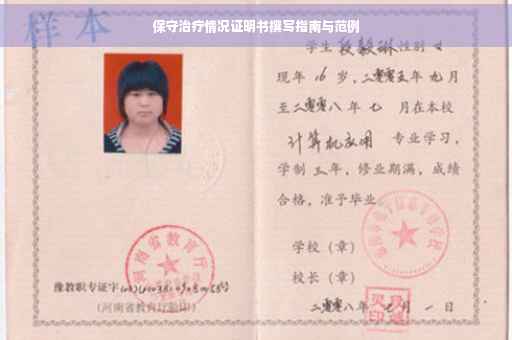 保守治疗情况证明书撰写指南与范例
样本
学生段毅琳性别女
现年16岁，二零零五年九月
至二零零八年七月在本校
计算机应用专业学习，
学制三年，修业期满，成绩
合格，准予毕业。
学校（章）
校长（章）
二零零八年七月一日
河南省教育厅
豫教职专证字
（河南省教育厅验印）